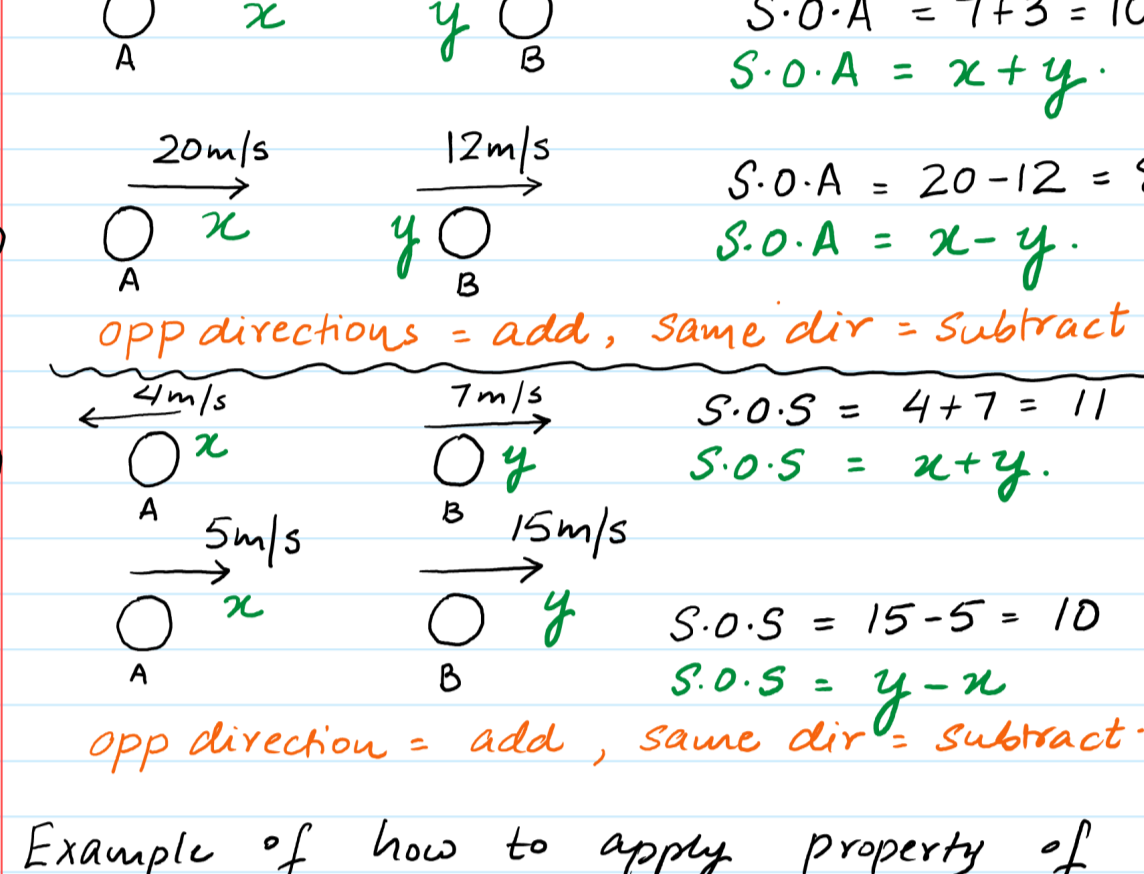 x y S.O.A = 7+3 = 10
A B
S.O.A = x+y.
20m/s 12m/s
S.O.A = 20-12 =
x y
S.O.A = x-y.
A B
opp directions = add, same dir = subtract
4m/s 7m/s S.O.S = 4+7 = 11
x y S.O.S = x+y.
A B
5m/s 15m/s
x y
S.O.S = 15-5 = 10
A B
S.O.S = y-x
opp direction = add, same dir = subtract.
Example of how to apply property of